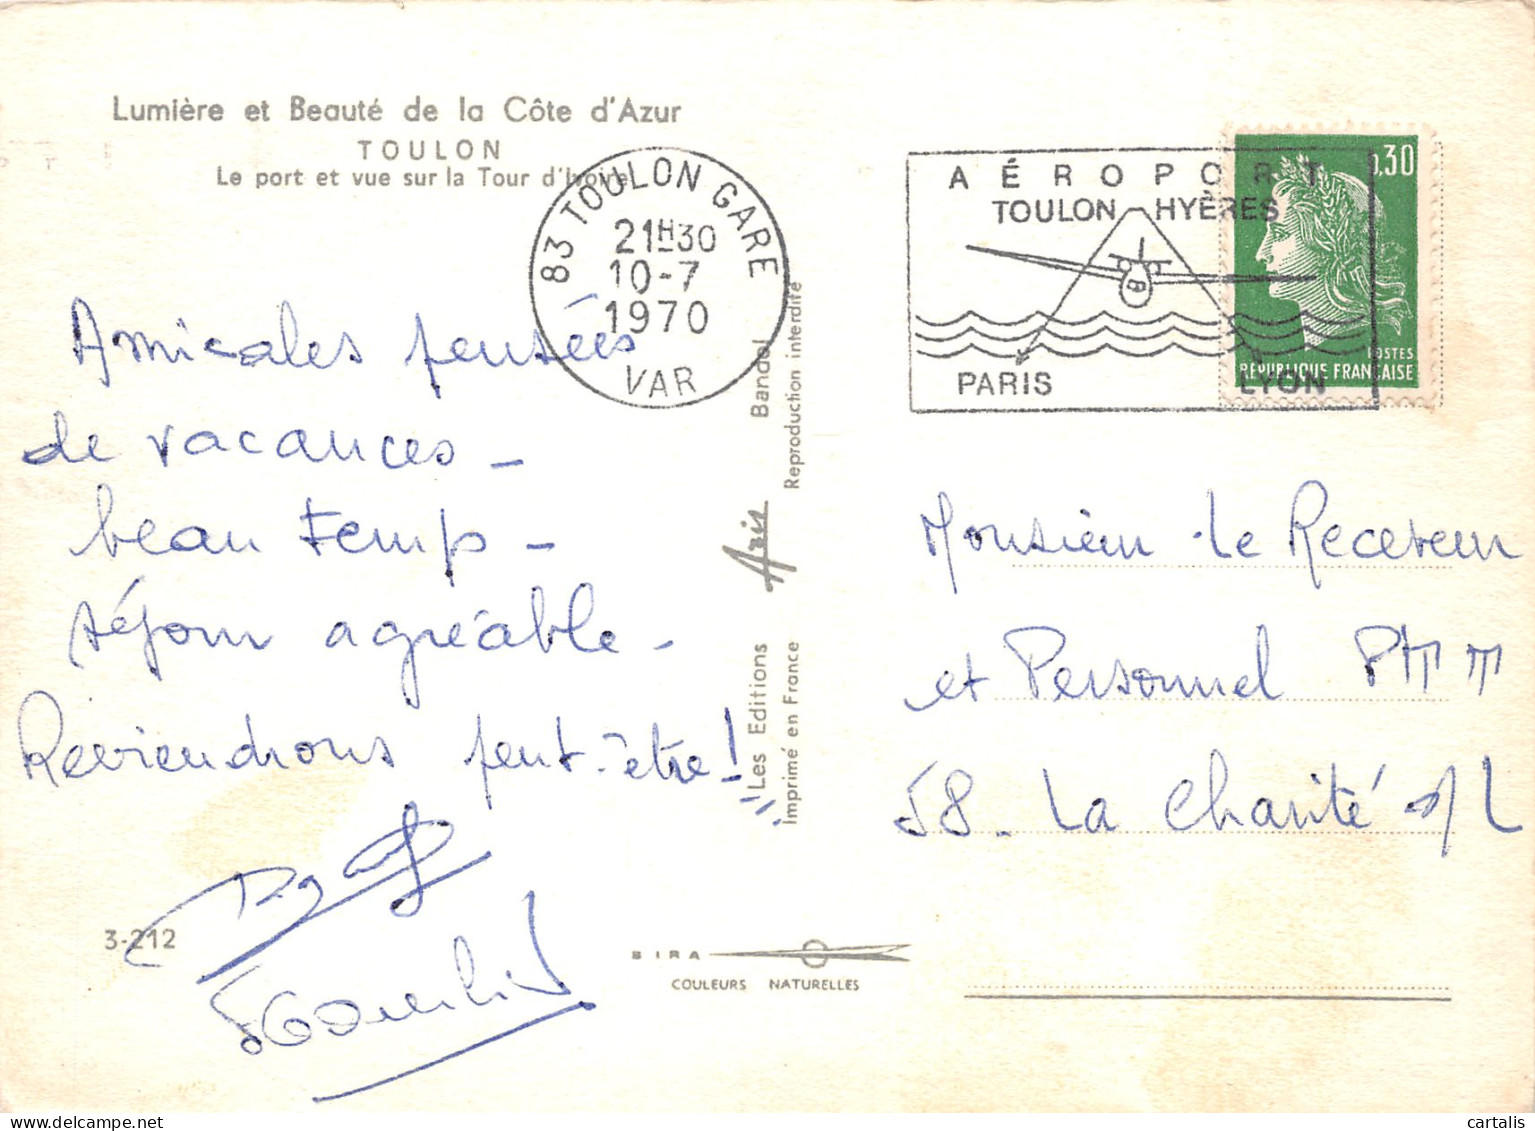 Lumière et Beauté de la Côte d'Azur
TOULON
Le port et vue sur la Tour d'Ivoire
83 TOULON GARE
21H30
10-7
1970
VAR
AÉROPORT
TOULON-HYÈRES
PARIS
LYON
0,30
POSTES
REPUBLIQUE FRANÇAISE
Amicales pensées
de vacances -
beau temps -
séjour agréable -
Reviendrons peut-être !
3-212
Les Editions Aris Bandol
Imprimé en France Reproduction interdite
SIRA
COULEURS NATURELLES
Monsieur le Receveur
et Personnel PTT
58 - La Charité s/L
cartalis